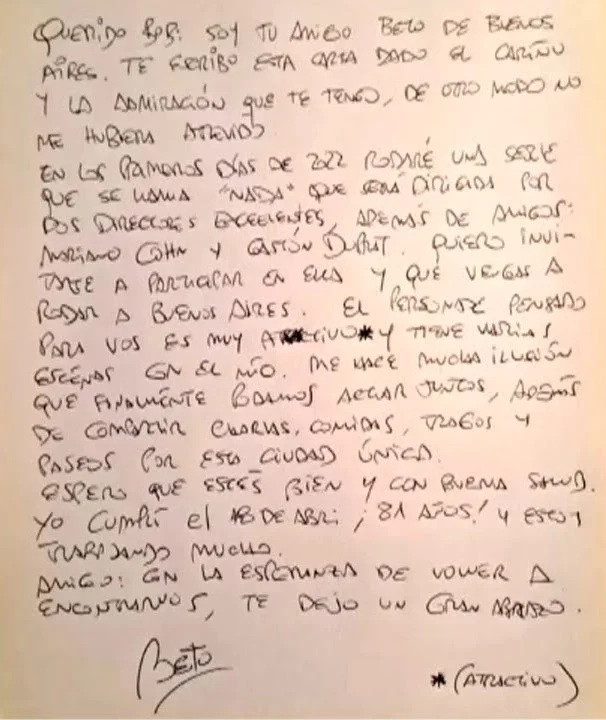 QUERIDO BOB: SOY TU AMIGO BETO DE BUENOS
AIRES. TE ESCRIBO ESTA CARTA DADO EL CARIÑO
Y LA ADMIRACIÓN QUE TE TENGO, DE OTRO MODO NO
ME HUBIERA ATREVIDO
EN LOS PRIMEROS DÍAS DE 2022 RODARÉ UNA SERIE
QUE SE LLAMA "NADA" QUE SERÁ DIRIGIDA POR
DOS DIRECTORES EXCELENTES, ADEMÁS DE AMIGOS:
MARIANO COHN Y GASTÓN DUPRAT. QUIERO INVI-
TARTE A PARTICIPAR EN ELLA Y QUE VENGAS A
RODAR A BUENOS AIRES. EL PERSONAJE PENSADO
PARA VOS ES MUY ATRACTIVO* Y TIENE VARIAS
ESCENAS CON EL MÍO. ME HACE MUCHA ILUSIÓN
QUE FINALMENTE PODAMOS ACTUAR JUNTOS, ADEMÁS
DE COMPARTIR CHARLAS, COMIDAS, TRAGOS Y
PASEOS POR ESTA CIUDAD ÚNICA.
ESPERO QUE ESTÉS BIEN Y CON BUENA SALUD.
YO CUMPLÍ EL 18 DE ABRIL ¡81 AÑOS! Y ESTOY
TRABAJANDO MUCHO.
AMIGO: EN LA ESPERANZA DE VOLVER A
ENCONTRARNOS, TE DEJO UN GRAN ABRAZO.
BETO
*(ATRACTIVO)